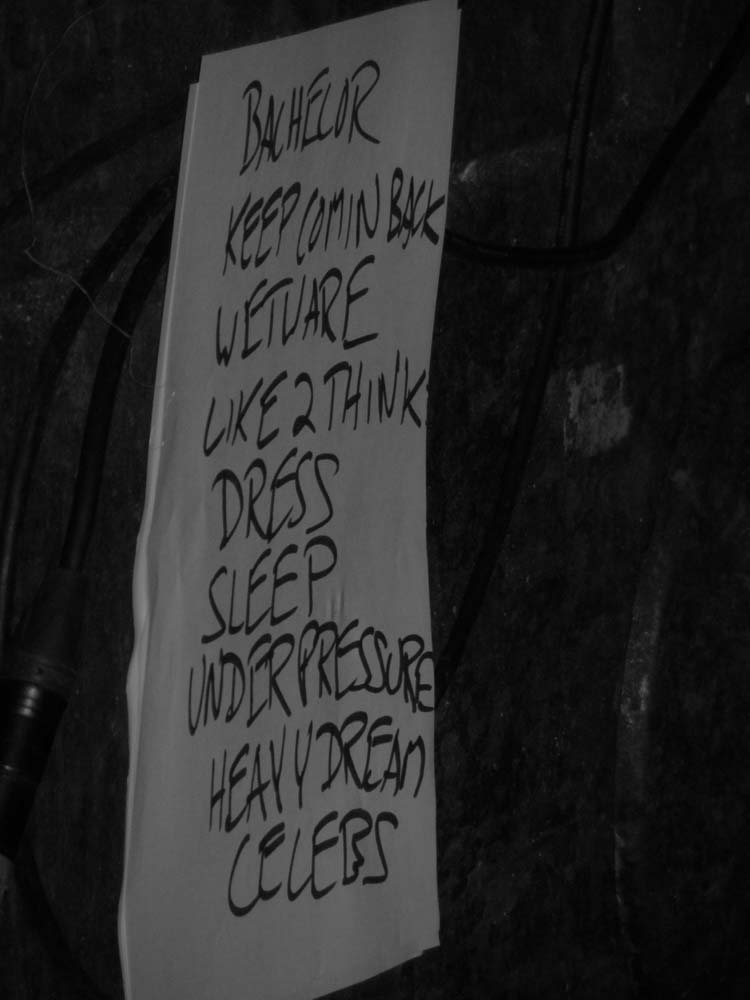 BACHELOR
KEEP COMIN BACK
WETWARE
LIKE 2 THINK
DRESS
SLEEP
UNDER PRESSURE
HEAVY DREAM
CELEBS